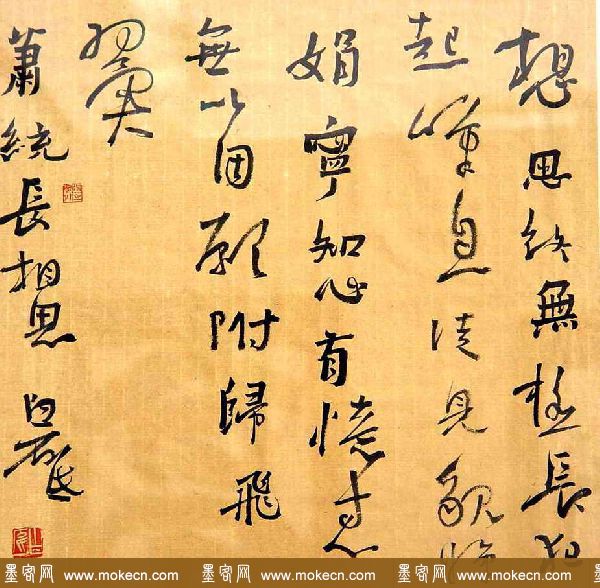 想思終無極長
起嘆息徒見貌
娟寧知心有憶寸心
無以因願附歸飛
翼
蕭統長相思 白砥
墨客网 www.mokecn.com 墨客网 www.mokecn.com 墨客网 www.mokecn.com